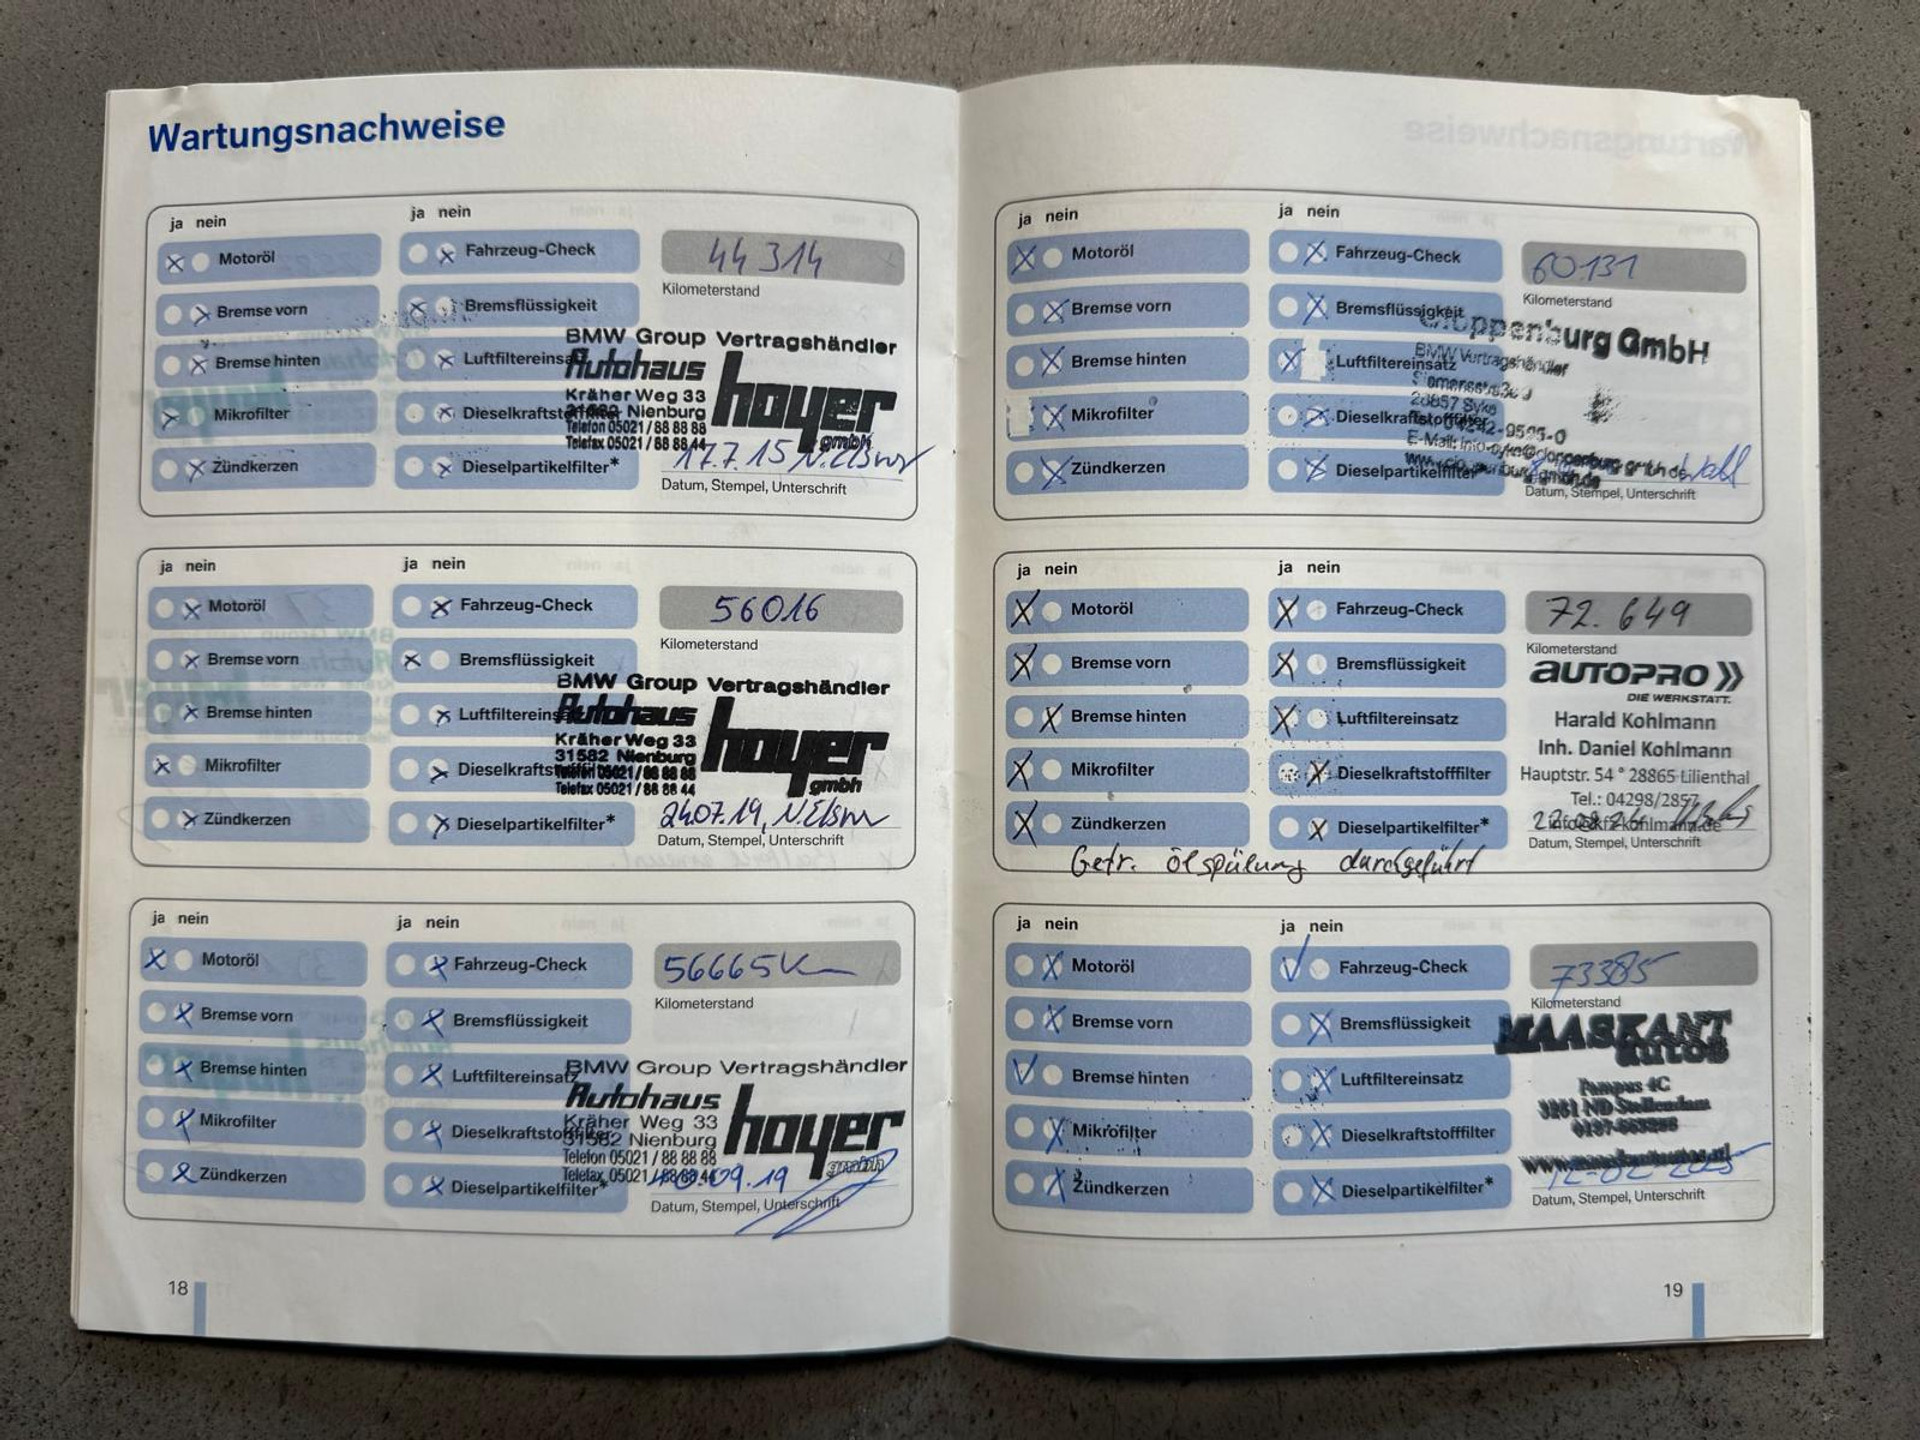 Wartungsnachweise
ja nein
ja nein
Motoröl
Fahrzeug-Check
44 314
Kilometerstand
Bremse vorn
Bremsflüssigkeit
BMW Group Vertragshändler
Bremse hinten
Luftfiltereinsa
Autohaus hoyer
Kräher Weg 33
Mikrofilter
Dieselkraftstofffilter
31582 Nienburg
Telefon 05021 / 88 88 88
Telefax 05021 / 88 88 44
gmbh
Zündkerzen
Dieselpartikelfilter*
17.7.15 N.Elsner
Datum, Stempel, Unterschrift
ja nein
ja nein
Motoröl
Fahrzeug-Check
56016
Kilometerstand
Bremse vorn
Bremsflüssigkeit
BMW Group Vertragshändler
Bremse hinten
Luftfiltereins
Autohaus hoyer
Kräher Weg 33
31582 Nienburg
Mikrofilter
Dieselkraftst
Telefon 05021 / 88 88 88
Telefax 05021 / 88 88 44
gmbh
Zündkerzen
Dieselpartikelfilter*
24.07.19, N.Elsner
Datum, Stempel, Unterschrift
ja nein
ja nein
Motoröl
Fahrzeug-Check
56665 Km
Kilometerstand
Bremse vorn
Bremsflüssigkeit
BMW Group Vertragshändler
Bremse hinten
Luftfiltereinsatz
Autohaus hoyer
Kräher Weg 33
Mikrofilter
Dieselkraftstofffilter
31582 Nienburg
Telefon 05021 / 88 88 88
Telefax 05021 / 88 88 44
gmbh
Zündkerzen
Dieselpartikelfilter*
09.19
Datum, Stempel, Unterschrift
18
ja nein
ja nein
Motoröl
Fahrzeug-Check
60131
Kilometerstand
Bremse vorn
Bremsflüssigkeit
Cloppenburg GmbH
BMW Vertragshändler
Bremse hinten
Luftfiltereinsatz
28857 Syke
Mikrofilter
Dieselkraftstofffilter
04242-9595-0
Zündkerzen
Dieselpartikelfilter*
Datum, Stempel, Unterschrift
ja nein
ja nein
Motoröl
Fahrzeug-Check
72.649
Kilometerstand
Bremse vorn
Bremsflüssigkeit
AUTOPRO
DIE WERKSTATT.
Bremse hinten
Luftfiltereinsatz
Harald Kohlmann
Inh. Daniel Kohlmann
Mikrofilter
Dieselkraftstofffilter
Hauptstr. 54 * 28865 Lilienthal
Tel.: 04298/2857
Zündkerzen
Dieselpartikelfilter*
info@kfz-kohlmann.de
Datum, Stempel, Unterschrift
Getr. ölspülung durchgeführt
ja nein
ja nein
Motoröl
Fahrzeug-Check
73385
Kilometerstand
Bremse vorn
Bremsflüssigkeit
MAASKANT
autos
Bremse hinten
Luftfiltereinsatz
Pampus 4C
3251 ND Stellendam
Mikrofilter
Dieselkraftstofffilter
www.maaskantautos.nl
Zündkerzen
Dieselpartikelfilter*
12-02-2025
Datum, Stempel, Unterschrift
19